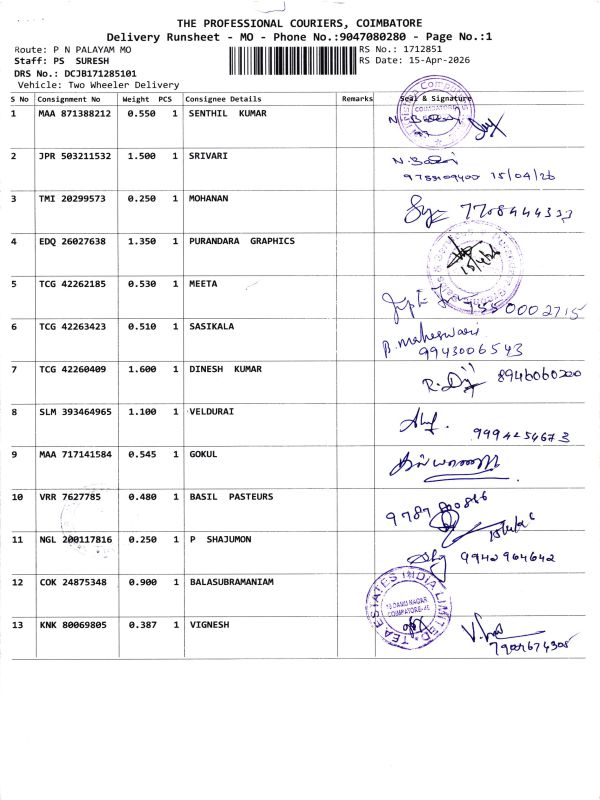 THE PROFESSIONAL COURIERS, COIMBATORE
Delivery Runsheet - MO - Phone No.:9047080280 - Page No.:1
Route: P N PALAYAM MO RS No.: 1712851
Staff: PS SURESH RS Date: 15-Apr-2026
DRS No.: DCJB171285101
Vehicle: Two Wheeler Delivery
S No Consignment No Weight PCS Consignee Details Remarks Seal & Signature
1 MAA 871388212 0.550 1 SENTHIL KUMAR
2 JPR 503211532 1.500 1 SRIVARI
15/04/26
3 TMI 20299573 0.250 1 MOHANAN
7708444333
4 EDQ 26027638 1.350 1 PURANDARA GRAPHICS
15/4/26
5 TCG 42262185 0.530 1 MEETA
7550002715
6 TCG 42263423 0.510 1 SASIKALA
B. maheswari
9943006543
7 TCG 42260409 1.600 1 DINESH KUMAR
8946060200
8 SLM 393464965 1.100 1 VELDURAI
9994254673
9 MAA 717141584 0.545 1 GOKUL
10 VRR 7627785 0.480 1 BASIL PASTEURS
11 NGL 200117816 0.250 1 P SHAJUMON
9942964642
12 COK 24875348 0.900 1 BALASUBRAMANIAM
TEA ESTATES INDIA LIMITED
13 KNK 80069805 0.387 1 VIGNESH